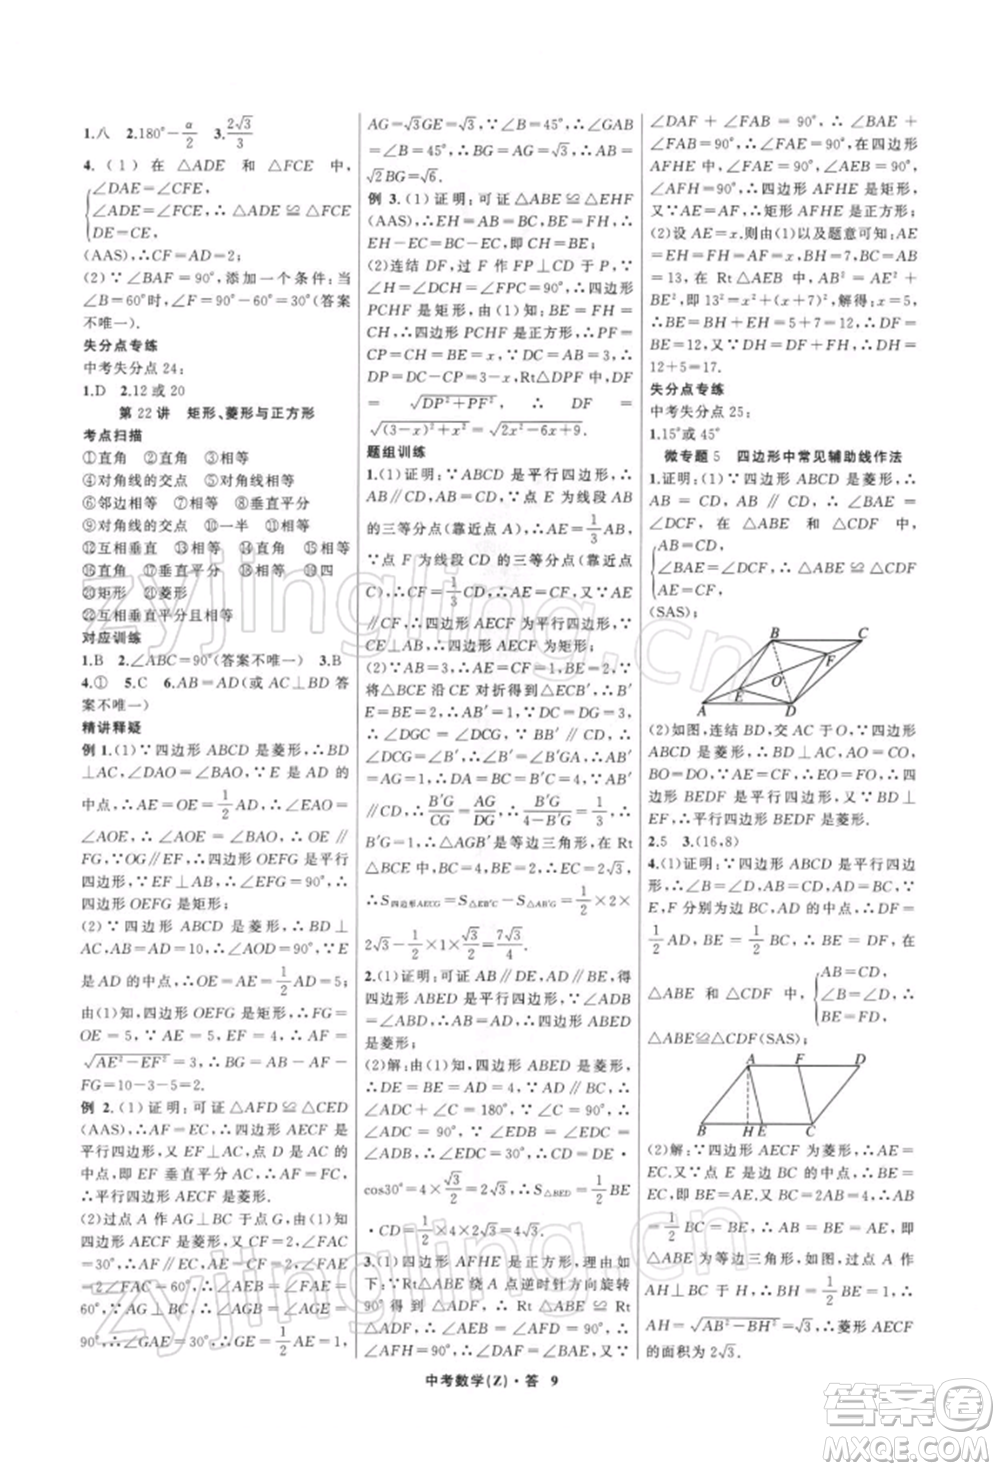 1.八 2.180°-α/2 3.2√3/3
4.(1) 在 △ADE 和 △FCE 中,
{∠DAE=∠CFE,
∠ADE=∠FCE,∴△ADE≌△FCE
DE=CE,
(AAS),∴CF=AD=CD;
(2)∵∠BAF=90°,添加一个条件:当
∠B=60°时,∠F=90°-60°=30°(答案
不唯一).
失分点专练
中考失分点 24:
1.D 2.12 或 20
第 22 讲 矩形、菱形与正方形
考点扫描
①直角 ②直角 ③相等
④对角线的交点 ⑤相等
⑥邻边相等 ⑦相等 ⑧垂直平分
⑨对角线的交点 ⑩一半 ⑪相等
⑫互相垂直 ⑬相等 ⑭相等
⑯直角 ⑰互相垂直 ⑱相等 ⑲四
⑳矩形 ㉑菱形
㉒互相垂直平分且相等
对应训练
1.B 2.∠ABC=90°(答案不唯一) 3.B
4.① 5.C 6.AB=AD(或 AC⊥BD 答
案不唯一)
精讲释疑
例 1.(1)∵四边形 ABCD 是菱形,∴BD
⊥AC,∠DAO=∠BAO,∵E 是 AD 的
中点,∴AE=OE=1/2 AD,∴∠EAO=
∠AOE,∴∠AOE=∠BAO,∴OE∥
FG,∵OG∥EF,∴四边形 OEFG 是平行
四边形,∵EF⊥AB,∴∠EFG=90°,∴
四边形 OEFG 是矩形;
(2)∵四边形 ABCD 是菱形,∴BD⊥
AC,AB=AD=10,∴∠AOD=90°,∵E
是 AD 的中点,∴OE=AE=1/2 AD=5;
由(1)知,四边形 OEFG 是矩形,∴FG=
OE=5,∵AE=5,EF=4,∴AF=
√(AE²-EF²)=3,∴BG=AB-AF-
FG=10-3-5=2.
例 2.(1)证明:可证△AFD≌△CED
(AAS),∴AF=EC,∴四边形 AECF 是平
行四边形,又∵EF⊥AC,点 D 是 AC 的
中点,即 EF 垂直平分 AC,∴AF=FC,
∴平行四边形 AECF 是菱形.
(2)过点 A 作 AG⊥BC 于点 G,由(1)知
四边形 AECF 是菱形,∵CF=2,∠FAC
=30°,∴AF∥EC,AE=CF=2,∠FAE
=2∠FAC=60°,∴∠AEB=∠FAE=
60°,∵AG⊥BC,∴∠AGB=∠AGE=
90°,∴∠GAE=30°,∴GE=1/2 AE=1,
AG=√3GE=√3,∵∠B=45°,∴∠GAB
=∠B=45°,∴BG=AG=√3,∴AB=
√2BG=√6.
例 3.(1)证明:可证△ABE≌△EHF
(AAS),∴EH=AB=BC,BE=FH,∴
EH=BC,∴BE=CH,即 CH=BE;
(2)连结 DF,过 F 作 FP⊥CD 于 P,如图,
∵∠H=∠DCH=∠FPC=90°,∴四边形
PCHF 是矩形,由(1)知:BE=FH=CH,
∴四边形 PCHF 是正方形,∴PF=CP=CH=BE=x,
∵DC=AB=3,∴Rt△DPF 中,
DF=√(DP²+PF²),∴DF=
√((3-x)²+x²)=√(2x²-6x+9).
题组训练
1.(1)证明:∵ABCD 是平行四边形,∴AB
∥CD,AB=CD,∵E 为线段
的三等分点(靠近点 A),∴AE=1/3 AB,
∵点 F 为线段 CD 的三等分点(靠近点
C),∴CF=1/3 CD,∴AE=CF,又∵AE∥
CF,∴四边形 AECF 为平行四边形,
∵四边形 AECF 为矩形;
(2)∵AB=3,∴AE=CF=1,BE=2,∵
将∠BCE 沿 CE 对折得到△ECB′,∴
BE=B′E=2,
∠DGC=∠B′,∵BB′∥CD,∴∠DGC
=∠B′GA,∠BAG=∠DGC,∴∠B′=∠B′GA,
∴AG=1,∴DG=DA-AG=3,∵AB′
∥CD,∴B′G/CG=AG/DG,∴B′G/(4-B′G)=1/3,∴
B′G=1,∴△AGB′是等边三角形,在 Rt
△BCE 中,BC=4,BE=2,∴EC=2√3,
∴S四边形AECG=S△EB′C-S△AB′G=1/2×2×
2√3-1/2×1×√3/2=7√3/4.
2.(1)证明:可证 AB∥DE,AD∥BE,得
四边形 ABED 是平行四边形,∵∠ADB
=∠ABD,∴AD=AB,∴四边形 ABED
是菱形;
(2)解:由(1)知,四边形 ABED 是菱形,
∴DE=BE=AD=4,∵AD∥BC,∴
∠ADC+∠C=180°,∵∠ADC=90°,∴
∠C=90°,∵∠DBE=∠EDB,∴∠DEC
=60°,∴∠EDC=30°,∴CD=DE·
cos30°=4×√3/2=2√3,∴S△BED=1/2 BE
·CD=1/2×4×2√3=4√3.
3.(1)四边形 AFHE 是正方形,理由如
下:∵Rt△ABE 绕 A 点逆时针方向旋转
90°得到△ADF,∴Rt△ABE≌Rt
△ADF,∴∠AEB=∠AFD=90°,∴
∠AFH=90°,∴AE=AF,∵∠
∠DAF+∠FAB=90°,∴∠BAE+
∠FAB=90°,∴∠FAE=90°,∴四边形
AFHE 中,∠FAE=90°,∠AEB=90°,
∠AFH=90°,∴四边形 AFHE 是矩形,
又∵AE=AF,∴矩形 AFHE 是正方形;
(2)设 AE=x.则由(1)以及题意可知:AE
=EH=FH=AF=x,BH=7,BC=AB
=13,在 Rt△AEB 中,AB²=AE²+
BE²,即 13²=x²+(x+7)²,解得:x=5,
∴BE=BH+EH=5+7=12,∴DF=
BE=12,又∵DH=DF+FH,∴DH=
12+5=17.
失分点专练
中考失分点 25:
1.15°或 45°
微专题 5 四边形中常见辅助线作法
1.证明:(1)∵四边形 ABCD 是菱形,∴
AB=CD,AB∥CD,∴∠BAE=
∠DCF,在△ABE 和△CDF 中,
{AB=CD,
∠BAE=∠DCF,∴△ABE≌△CDF
AE=CF,
(SAS);
B C
F
O
E
A D
(2)如图,连结 BD,交 AC 于 O,∵四边形
ABCD 是菱形,∴BD⊥AC,AO=CO,
BO=DO,∵AE=CF,∴EO=FO,∴四
边形 BEDF 是平行四边形,又∵BD⊥
EF,∴平行四边形 BEDF 是菱形.
2.5 3.(16,8)
4.(1)证明:∵四边形 ABCD 是平行四边
形,∴AB=CD,BC=AD,∠B=∠D,∵
E,F 分别为边 BC,AD 的中点,∴DF=
1/2 AD,BE=1/2 BC,∴BE=DF,在
△ABE 和△CDF 中,{AB=CD,
∠B=∠D,∴
BE=FD,
△ABE≌△CDF(SAS);
A F D
B H E C
(2)解:∵四边形 AECF 为菱形时,AE=
EC,又∵点 E 是边 BC 的中点,∴BE=
EC,即 BE=AE,又 BC=2AB=4,∴AB
=1/2 BC=BE,∴AB=BE=AE,即
△ABE 为等边三角形,如图,过点 A 作
AH⊥BC 于 H,∴BH=1/2 BE=1,∴
AH=√(AB²-BH²)=√3,∴菱形 AECF
的面积为 2√3.
中考数学(Z)·答 9
zyjingling.cn
zyjingling.cn
答案圈
MXQE.COM